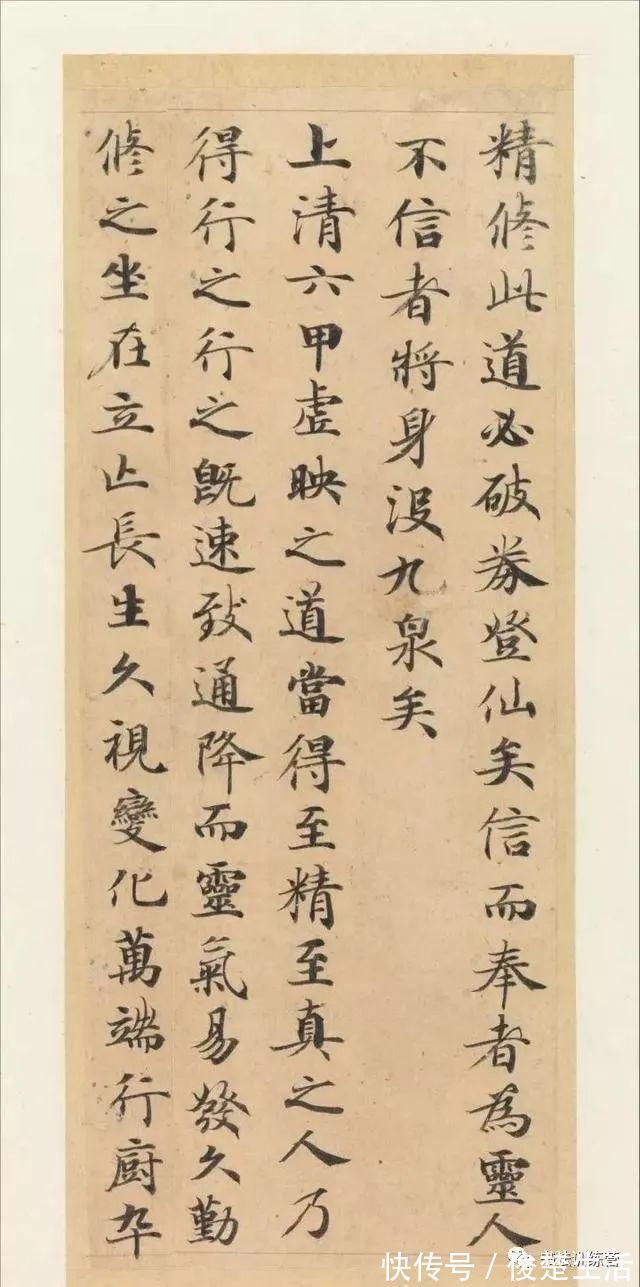 精修此道必破券登仙矣信而奉者為靈人
不信者將身沒九泉矣
上清六甲虛映之道當得至精至真之人乃
得行之行之既速致通降而靈氣易發久勤
修之坐在立亡長生久視變化萬端行廚卒
快传号／俊楚生活